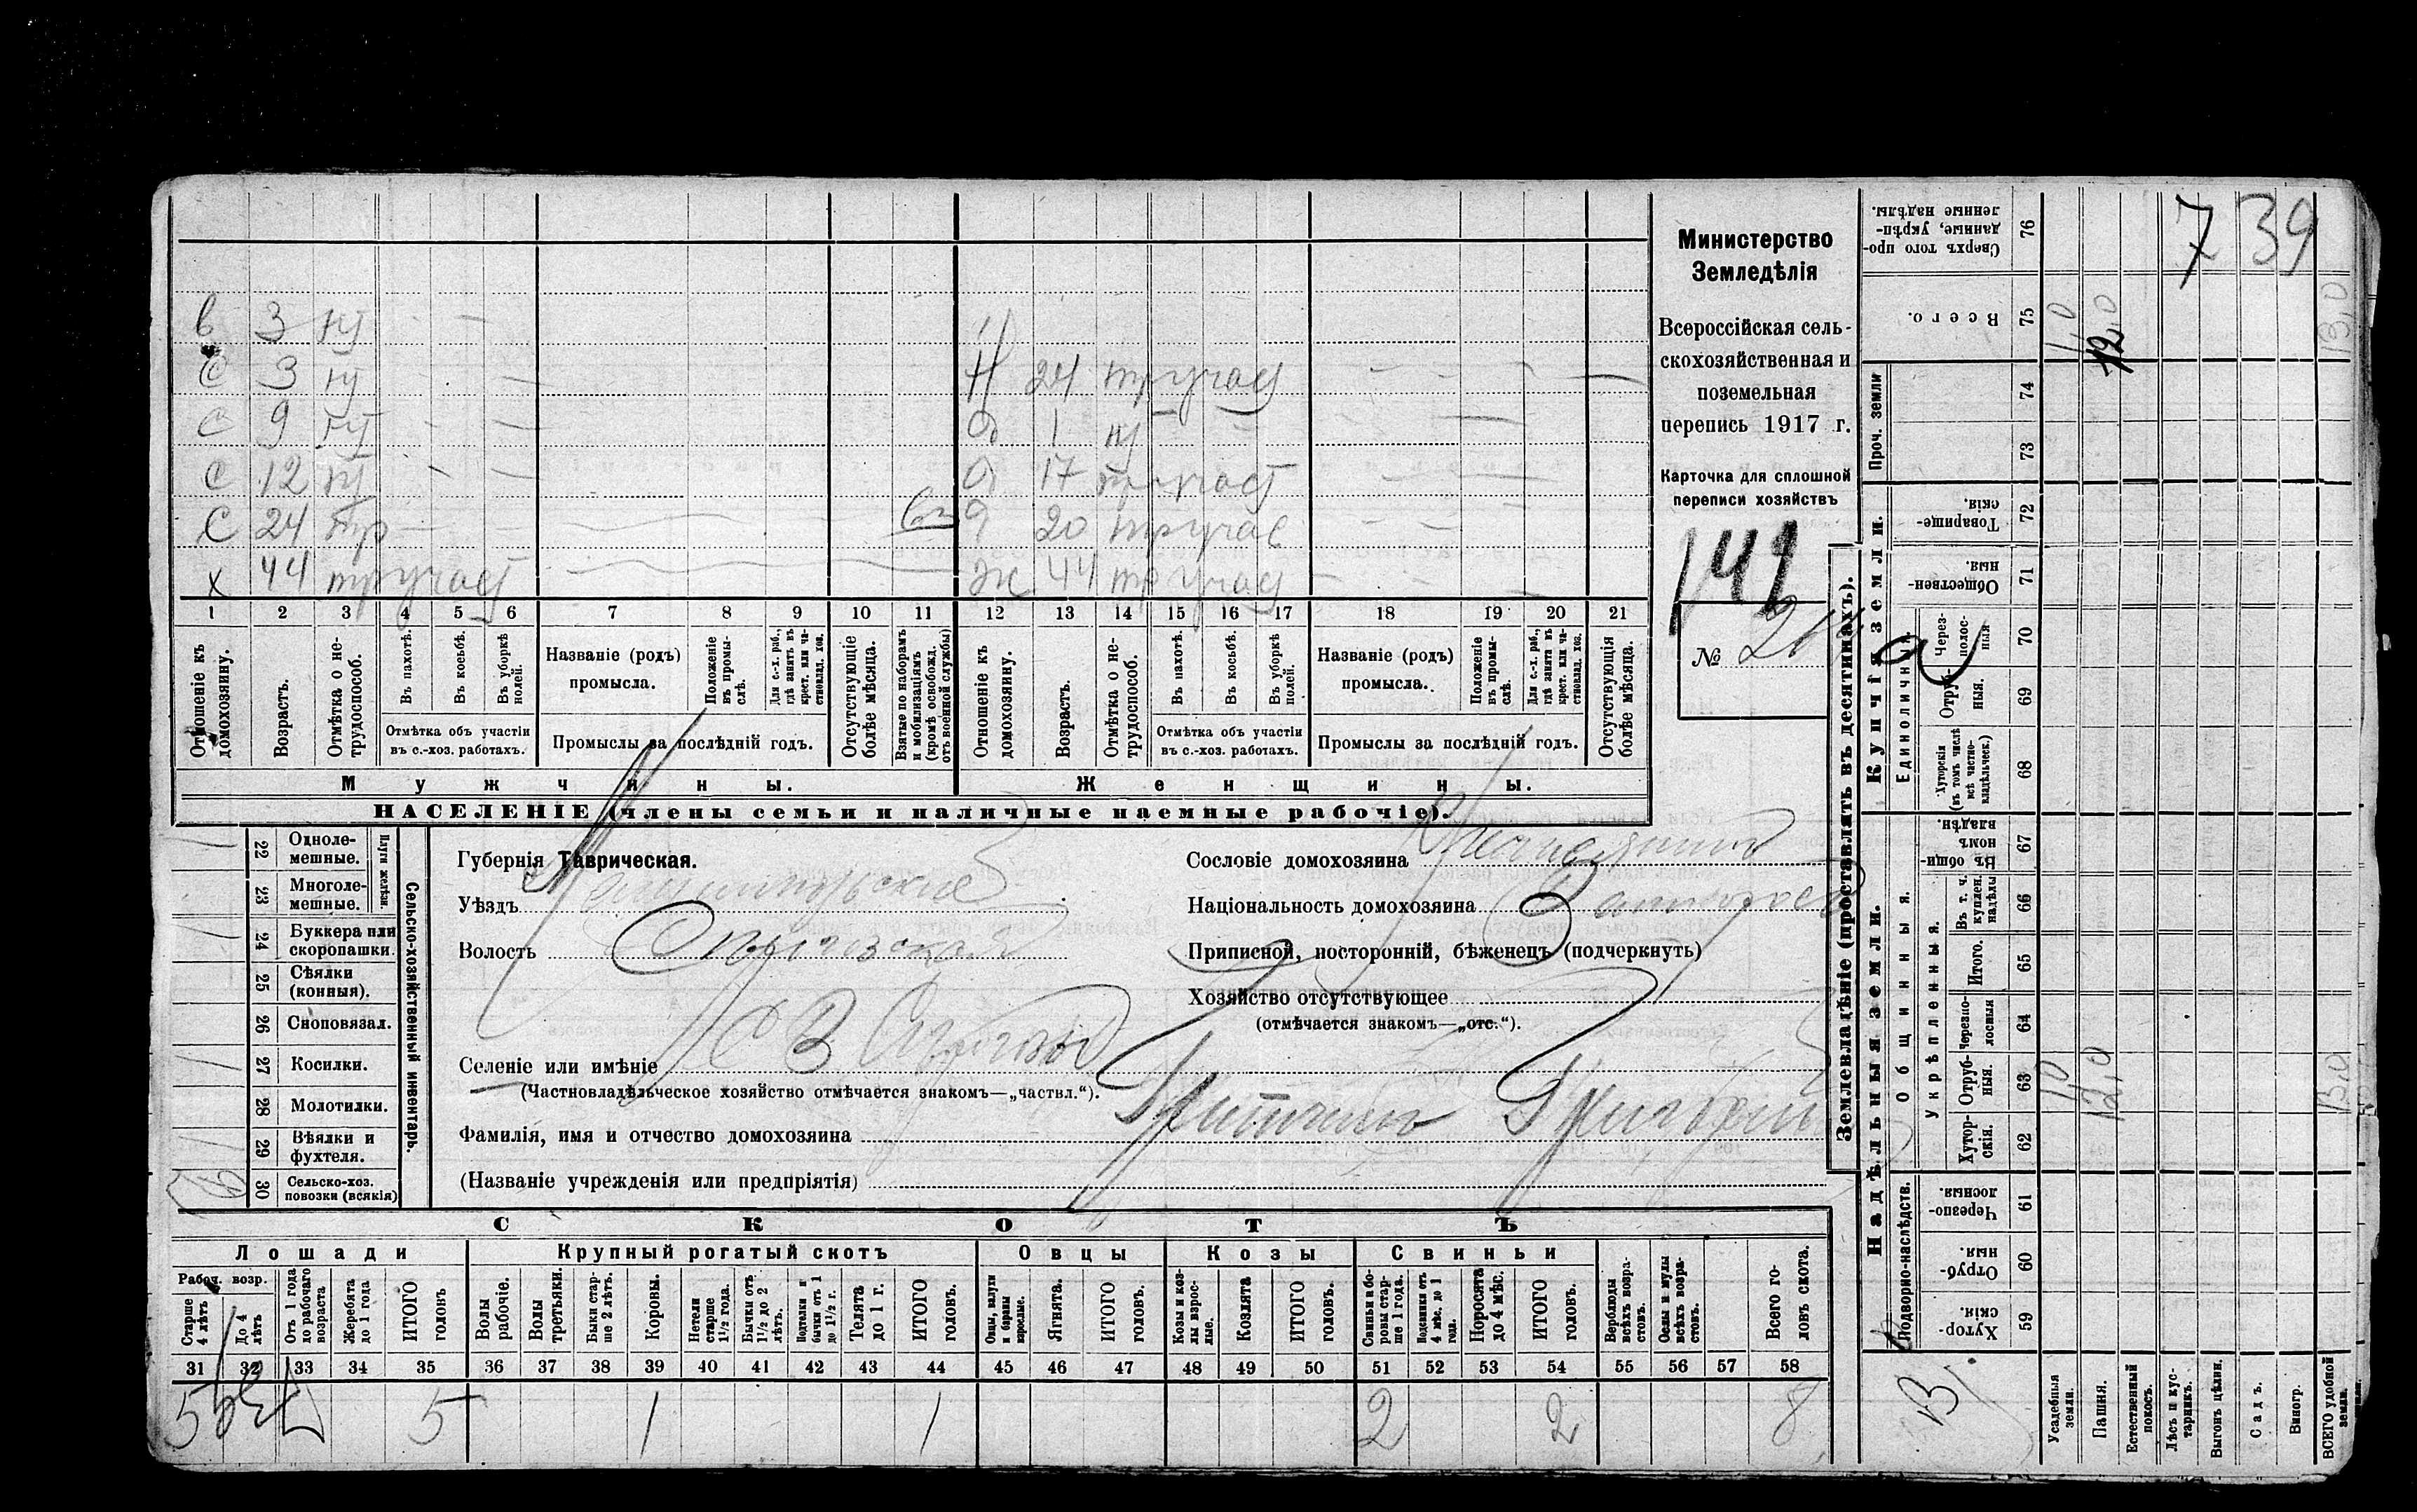 в 3 нт - -
с 3 нт - -
с 9 нт - -
с 12 нт - -
с 24 тр
х 44 тр участ
Н 24 тр участ
д 1 нт
д 17 тр участ
д 20 тр учас
ж 44 тр участ
1 2 3 4 5 6 7 8 9 10 11 12 13 14 15 16 17 18 19 20 21
Отношеніе къ домохозяину.
Возрастъ.
Отмѣтка о нетрудоспособ.
Въ пахотѣ.
Въ косьбѣ.
Въ уборкѣ полей.
Отмѣтка объ участіи
въ с.-хоз. работахъ.
Названіе (родъ)
промысла.
Положеніе въ промыслѣ.
Для с.-х. раб., гдѣ занятъ въ крест. или частновлад. хоз.
Промыслы за послѣдній годъ.
Отсутствующіе болѣе мѣсяца.
Взятые по наборамъ и мобилизаціямъ (кромѣ освобожд. отъ военной службы)
Отношеніе къ домохозяину.
Возрастъ.
Отмѣтка о нетрудоспособ.
Въ пахотѣ.
Въ косьбѣ.
Въ уборкѣ полей.
Отмѣтка объ участіи
въ с.-хоз. работахъ.
Названіе (родъ)
промысла.
Положеніе въ промыслѣ.
Для с.-х. раб., гдѣ занята въ крест. или частновлад. хоз.
Промыслы за послѣдній годъ.
Отсутствующія болѣе мѣсяца.
Мужчины.
Женщины.
НАСЕЛЕНІЕ (члены семьи и наличные наемные рабочіе).
Министерство
Земледѣлія
Всероссійская сель-
скохозяйственная и
поземельная
перепись 1917 г.
Карточка для сплошной
переписи хозяйствъ
141
№ 21
22 Одноле-
мешные.
23 Многоле-
мешные.
Плуги желѣзн.
24 Буккера или
скоропашки.
25 Сѣялки
(конныя).
26 Сноповязал.
27 Косилки.
28 Молотилки.
29 Вѣялки и
фухтеля.
30 Сельско-хоз.
повозки (всякія)
Сельско-хозяйственный инвентарь.
Губернія Таврическая.
Уѣздъ
Волость
Селеніе или имѣніе
(Частновладѣльческое хозяйство отмѣчается знакомъ—„частвл.“).
Фамилія, имя и отчество домохозяина Григорій
(Названіе учрежденія или предпріятія)
Сословіе домохозяина
Національность домохозяина
Приписной, посторонній, бѣженецъ (подчеркнуть)
Хозяйство отсутствующее
(отмѣчается знакомъ—„отс.“).
СКОТЪ
Лошади
Крупный рогатый скотъ
Овцы
Козы
Свиньи
Рабоч. возр.
Старше 4 лѣтъ
До 4 лѣтъ
Отъ 1 года до рабочаго возраста
Жеребята до 1 года
ИТОГО головъ
Волы рабочіе.
Волы третьяки.
Быки старше 2 лѣтъ.
Коровы.
Нетели старше 1½ года.
Бычки отъ 1½ до 2 лѣтъ.
Подтелки и бычки отъ 1 до 1½ г.
Телята до 1 г.
ИТОГО головъ.
Овцы, валухи и бараны взрослые.
Ягнята.
ИТОГО головъ.
Козы и козлы взрослые.
Козлята
ИТОГО головъ.
Свиньи и боровы старше 1 года.
Подсвинки отъ 4 мѣс. до 1 года.
Поросята до 4 мѣс.
ИТОГО головъ.
Верблюды всѣхъ возрастовъ.
Ослы и мулы всѣхъ возрастовъ.
Всего головъ скота.
31 32 33 34 35 36 37 38 39 40 41 42 43 44 45 46 47 48 49 50 51 52 53 54 55 56 57 58
5 5 1 1 2 2 8
Землевладѣніе (проставлять въ десятинахъ).
Надѣльныя земли.
Купчія земли.
Проч. земли
Подворно-наслѣдств.
Общинныя.
Укрѣпленныя.
Единоличныя.
Хуторскія. 59
Отрубныя. 60
Черезполосныя. 61
Хуторскія. 62
Отрубныя. 63
Черезполосныя 64
Итого. 65
Въ т. ч. куплен. надѣлы 66
Въ общинномъ владѣн. 67
Хуторскія (въ томъ числѣ всѣ частновладѣльческ.) 68
Отрубныя. 69
Черезполосныя 70
Общественныя. 71
Товарищескія. 72
73
74
Всего. 75
Сверхъ того проданные, укрѣпленные надѣлы. 76
7 39
1,0 12,0 13,0
1,0 12,0 13,0
Усадебныя земли.
Пашня.
Естественный покосъ.
Лѣсъ и кустарникъ.
Выгонъ цѣлин.
Садъ.
Виногр.
ВСЕГО удобной земли.